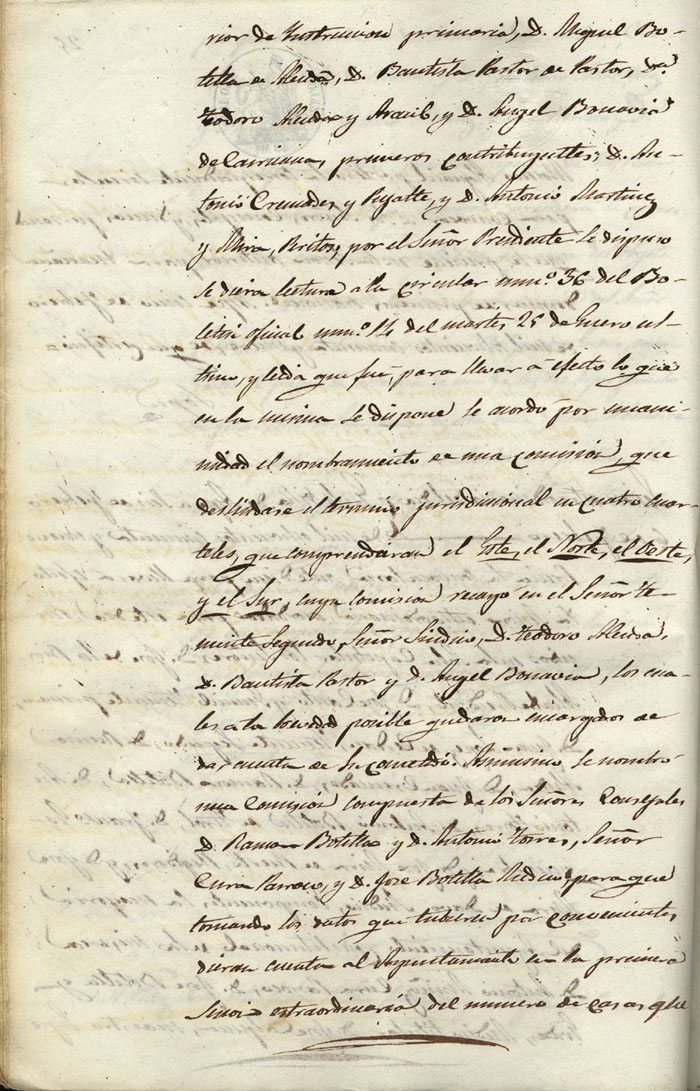 rior de Instruccion primaria, D. Miguel Bo-
tella de Alcudia, D. Bautista Pastor de Pastor, D.
Teodoro Alcudia y Aracil, y D. Angel Bonavia
de Carricana, primeros contribuyentes; D. An-
tonio Cremades y Pujalte, y D. Antonio Martinez
y Mira, Peritos, por el Señor Presidente se dispuso
se diera lectura a la circular num.º 36 del Bo-
letin oficial num.º 14 del martes 25 de Enero ul-
timo, y leida que fué, para llevar á efecto lo que
en la misma se dispone se acordó por unani-
midad el nombramiento de una comisión, que
deslindase el termino jurisdisional en cuatro cuar-
teles, que comprendieran el Este, el Norte, el Oeste,
y el Sur, cuya comision recayó en el Señor te-
niente Segundo, Señor Sindico, D. Teodoro Alcudia,
D. Bautista Pastor y D. Angel Bonavia, los cua-
les a la brevedad posible quedaron encargados de
dar cuenta de su cometido. Asimismo se nombró
una Comisión compuesta de los Señores Consejales
D. Ramon Botella y D. Antonio Torres, Señor
Cura Parroco, y D. Jose Botella Medico, para que
tomando los datos que tubieren por convenientes
dieran cuenta al Ayuntamiento en la primera
Sesion extraordinaria del numero de casas que